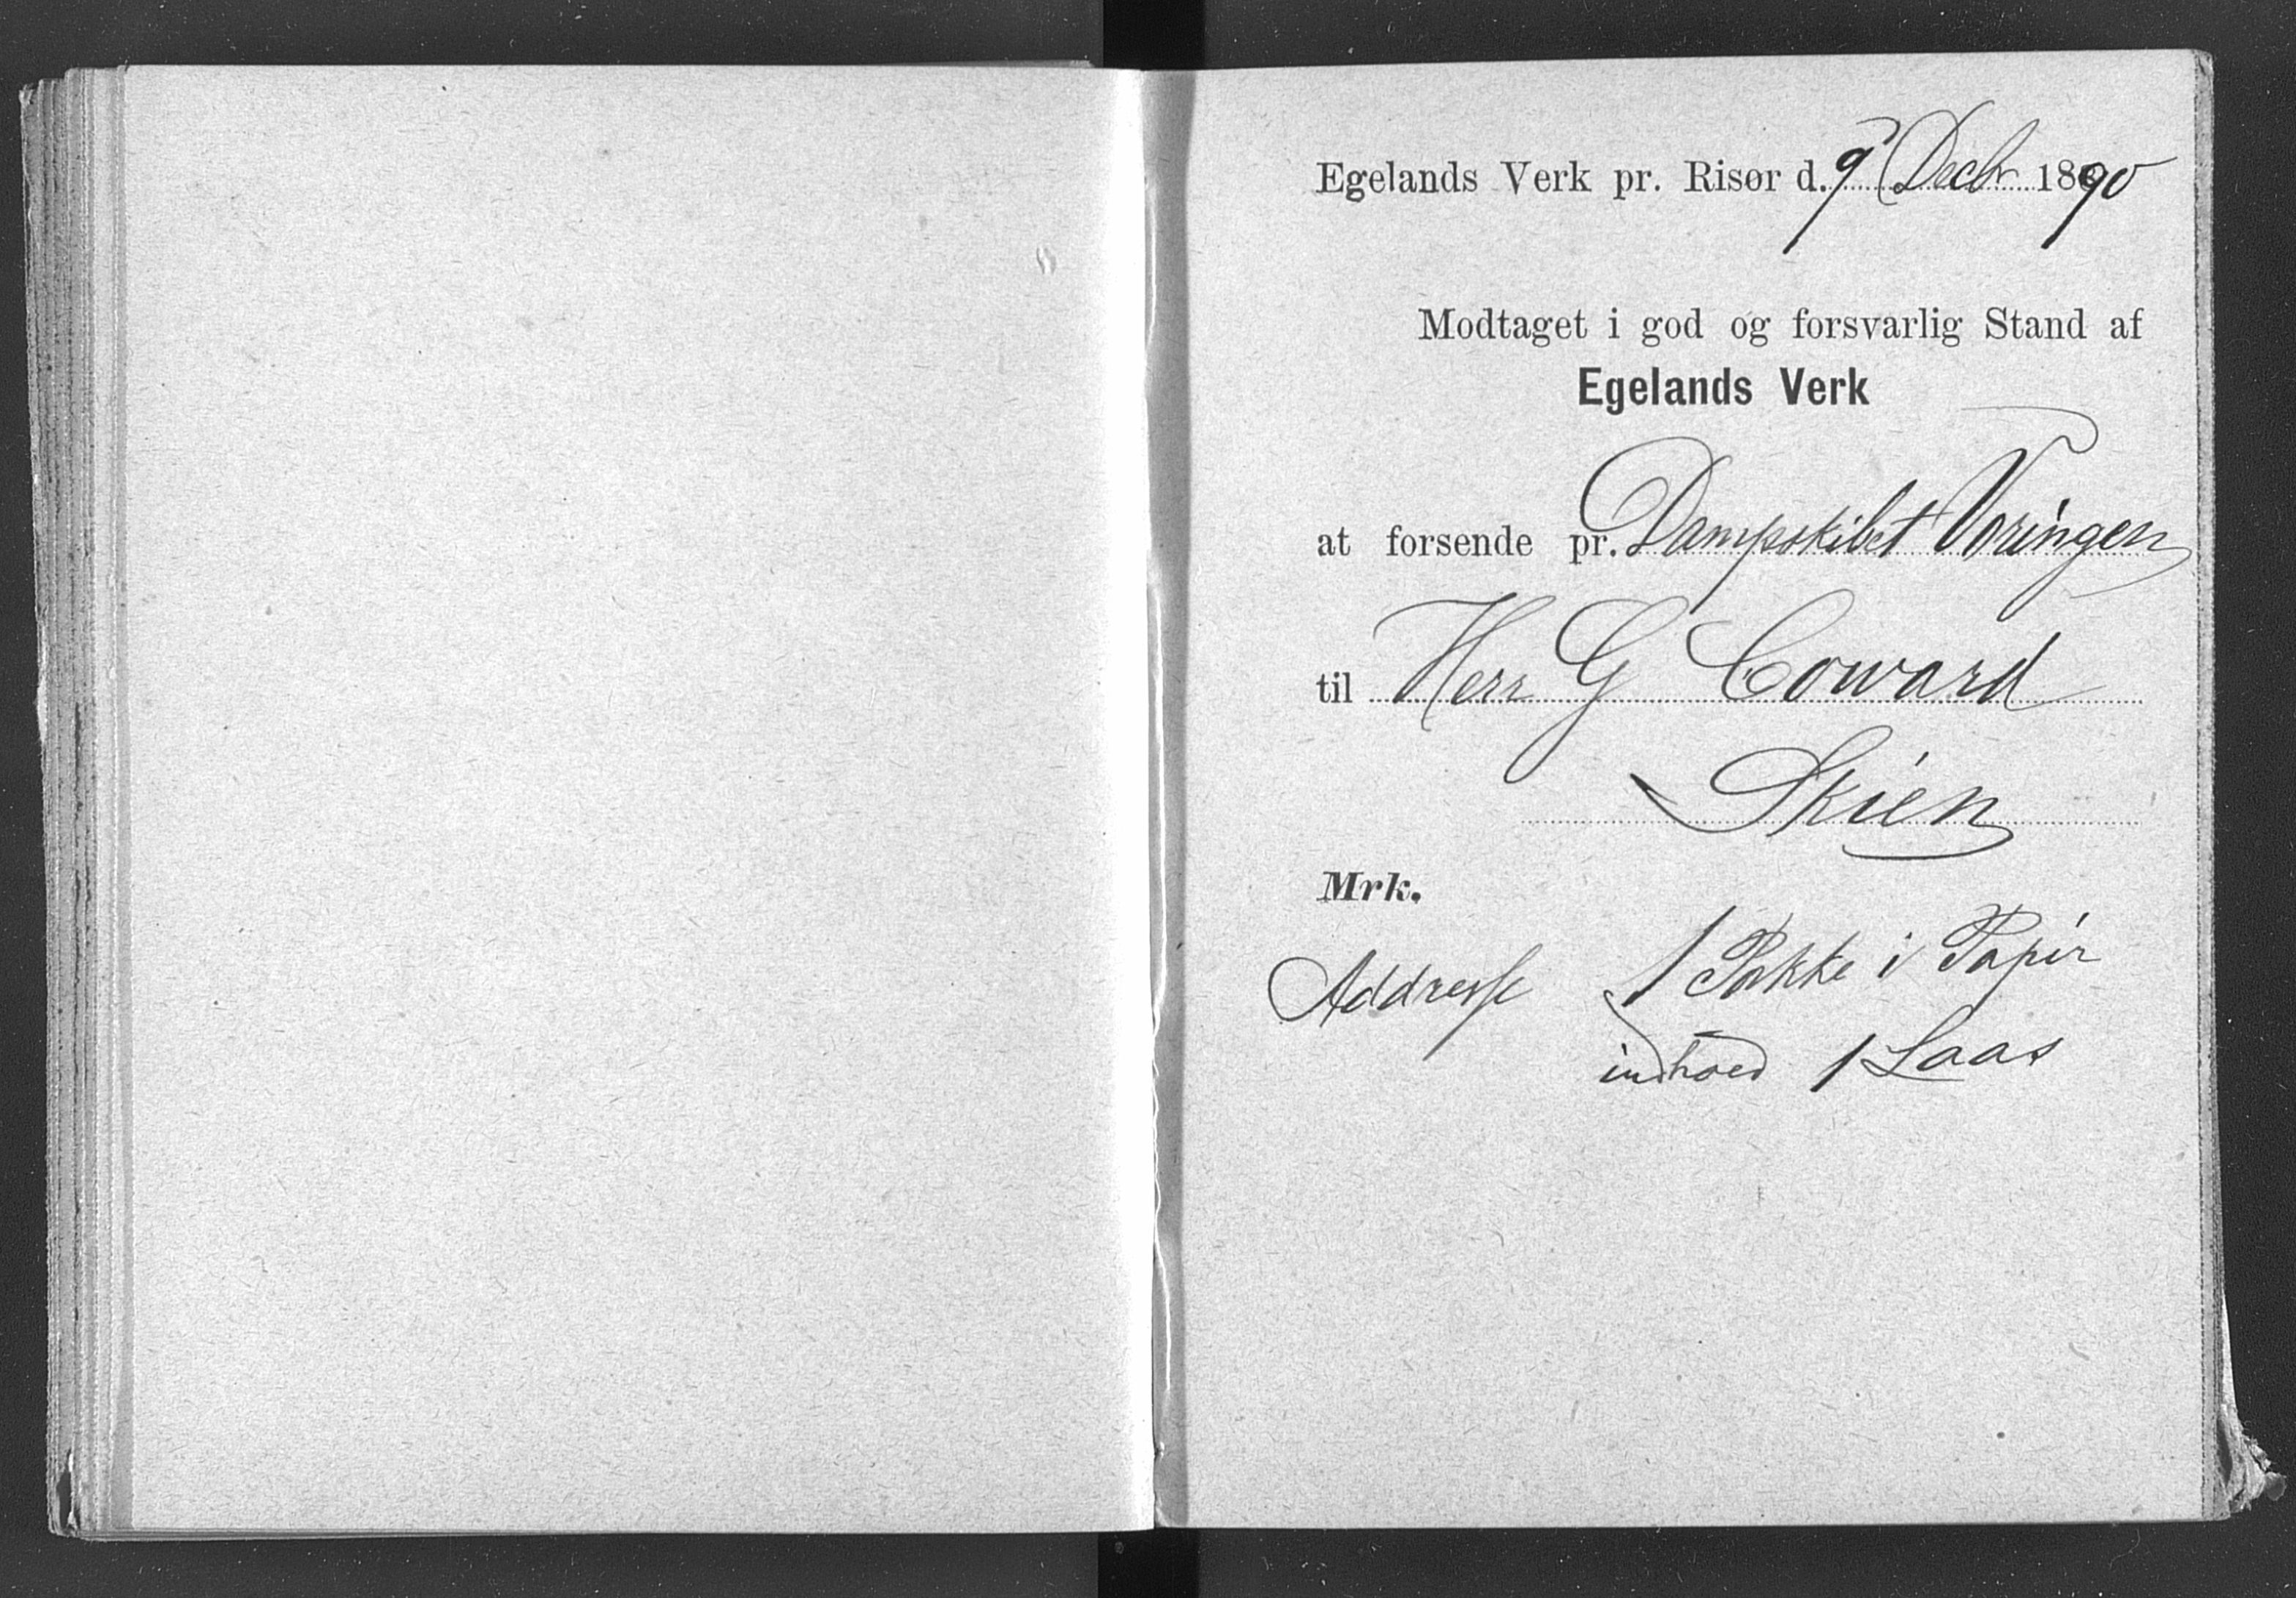 Egelands Verk pr. Risør d. 9 Decbr 1890
Modtaget i god og forsvarlig Stand af
Egelands Verk
at forsende pr. Dampskibet Vøringen
til Herr G Coward
Skien
Mrk.
Addresse 1 Pakke i Papir
1 Laas